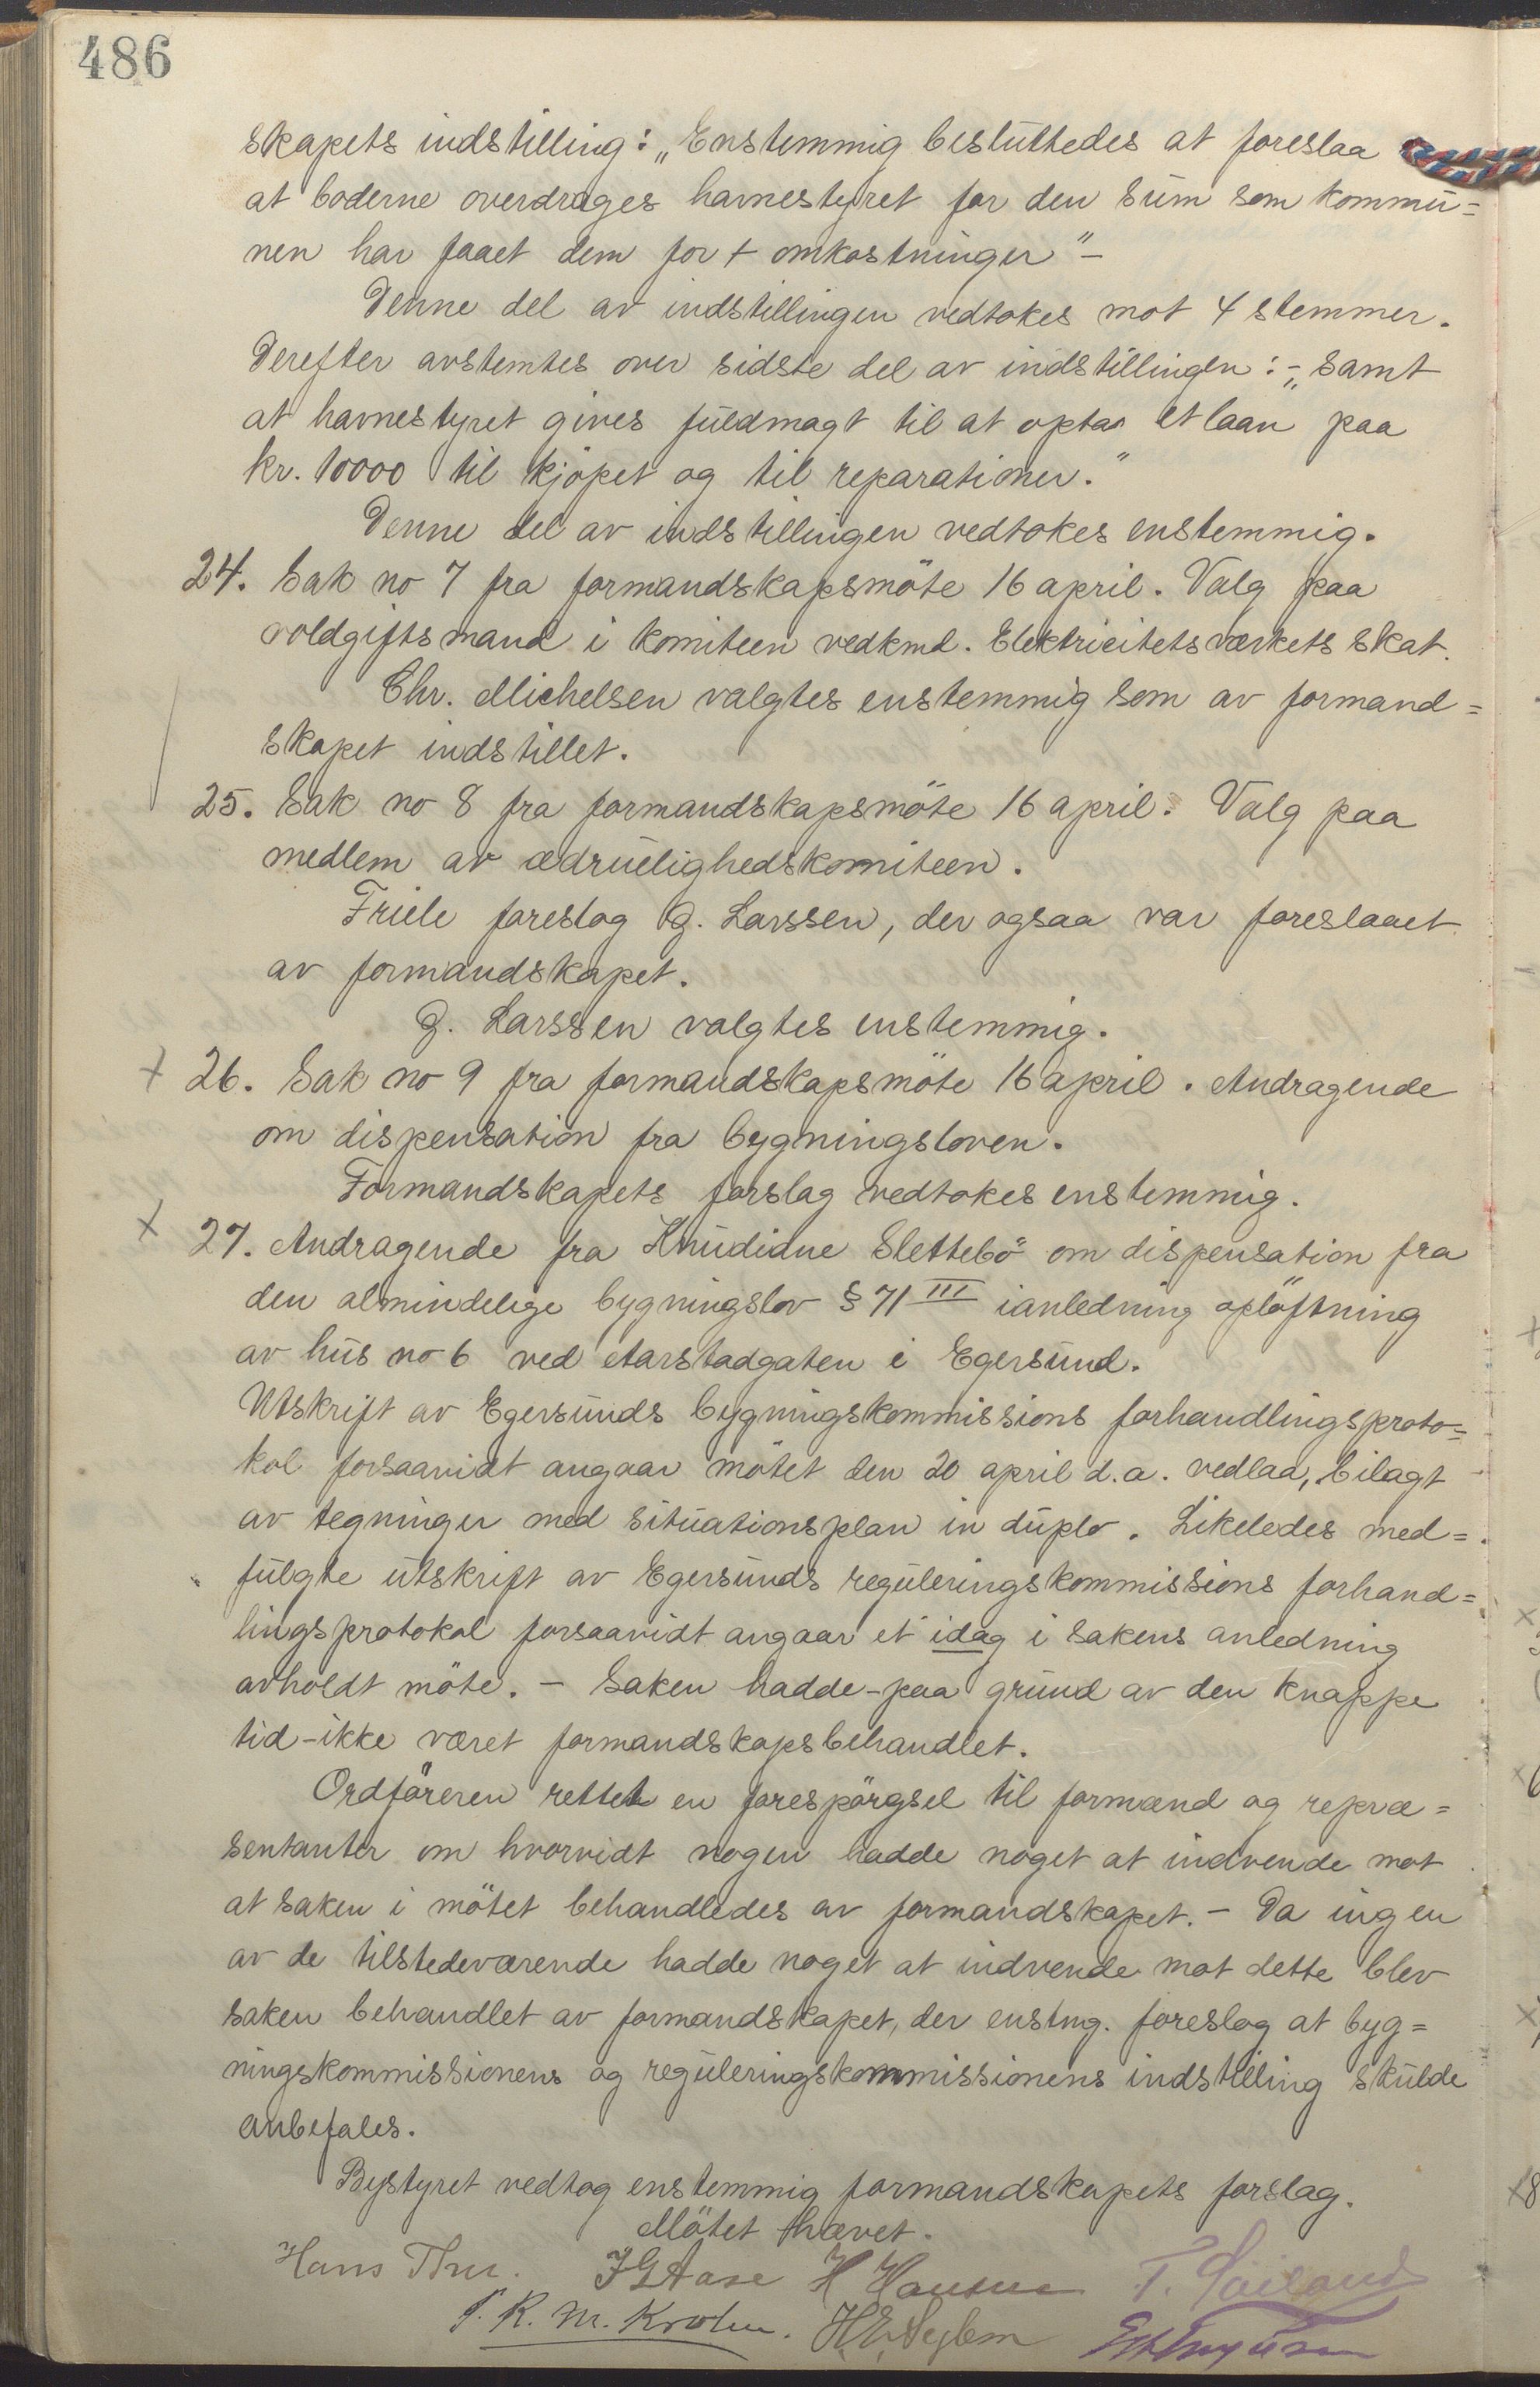 486
skapets indstilling: „Enstemmig besluttedes at foreslaa
at boderne overdrages havnestyret for den sum som kommu=
nen har faaet dem for + omkostninger" –
Denne del av indstillingen vedtokes mot 4 stemmer.
Derefter avstemtes over sidste del av indstillingen: – „samt
at havnestyret gives fuldmagt til at optaa et laan paa
kr. 10000 til kjöpet og til reparationer."
Denne del av indstillingen vedtokes enstemmig.
24. Sak no 7 fra formandskapsmöte 16 april. Valg paa
voldgiftsmand i komiteen vedkmd. Elektricitetsværkets skat.
Chr. Michelsen valgtes enstemmig som av formand=
skapet indstillet.
25. Sak no 8 fra formandskapsmöte 16 april. Valg paa
medlem av ædruelighedskomiteen.
Friele foreslog G. Larssen, der ogsaa var foreslaaet
av formandskapet.
G. Larssen valgtes enstemmig.
x 26. Sak no 9 fra formandskapsmöte 16 april. Andragende
om dispensation fra bygningsloven.
Formandskapets forslag vedtokes enstemmig.
x 27. Andragende fra Knudidne Slettebö om dispensation fra
den almindelige bygningslov § 71 III ianledning oplöftning
av hus no 6 ved Aarstadgaten i Egersund.
Utskrift av Egersunds bygningskommissions forhandlingsproto=
kol forsaavidt angaar mötet den 20 april d.a. vedlaa, bilagt
av tegninger med situationsplan in duplo. Likeledes med=
fulgte utskrift av Egersunds reguleringskommissions forhand=
lingsprotokol forsaavidt angaar et idag i sakens anledning
avholdt möte. – Saken hadde – paa grund av den knappe
tid – ikke været formandskapsbehandlet.
Ordföreren rettet en forespörgsel til formænd og repræ=
sentanter om hvorvidt nogen hadde noget at indvende mot
at saken i mötet behandledes av formandskapet. – Da ingen
av de tilstedeværende hadde noget at indvende mot dette blev
saken behandlet av formandskapet, der enstmg. foreslog at byg=
ningskommissionens og reguleringskommissionens indstilling skulde
anbefales.
Bystyret vedtog enstemmig formandskapets forslag.
Mötet hævet.
Hans Thu. J G Aase H Hansen
R. M. Krohn. H. E. Seglem